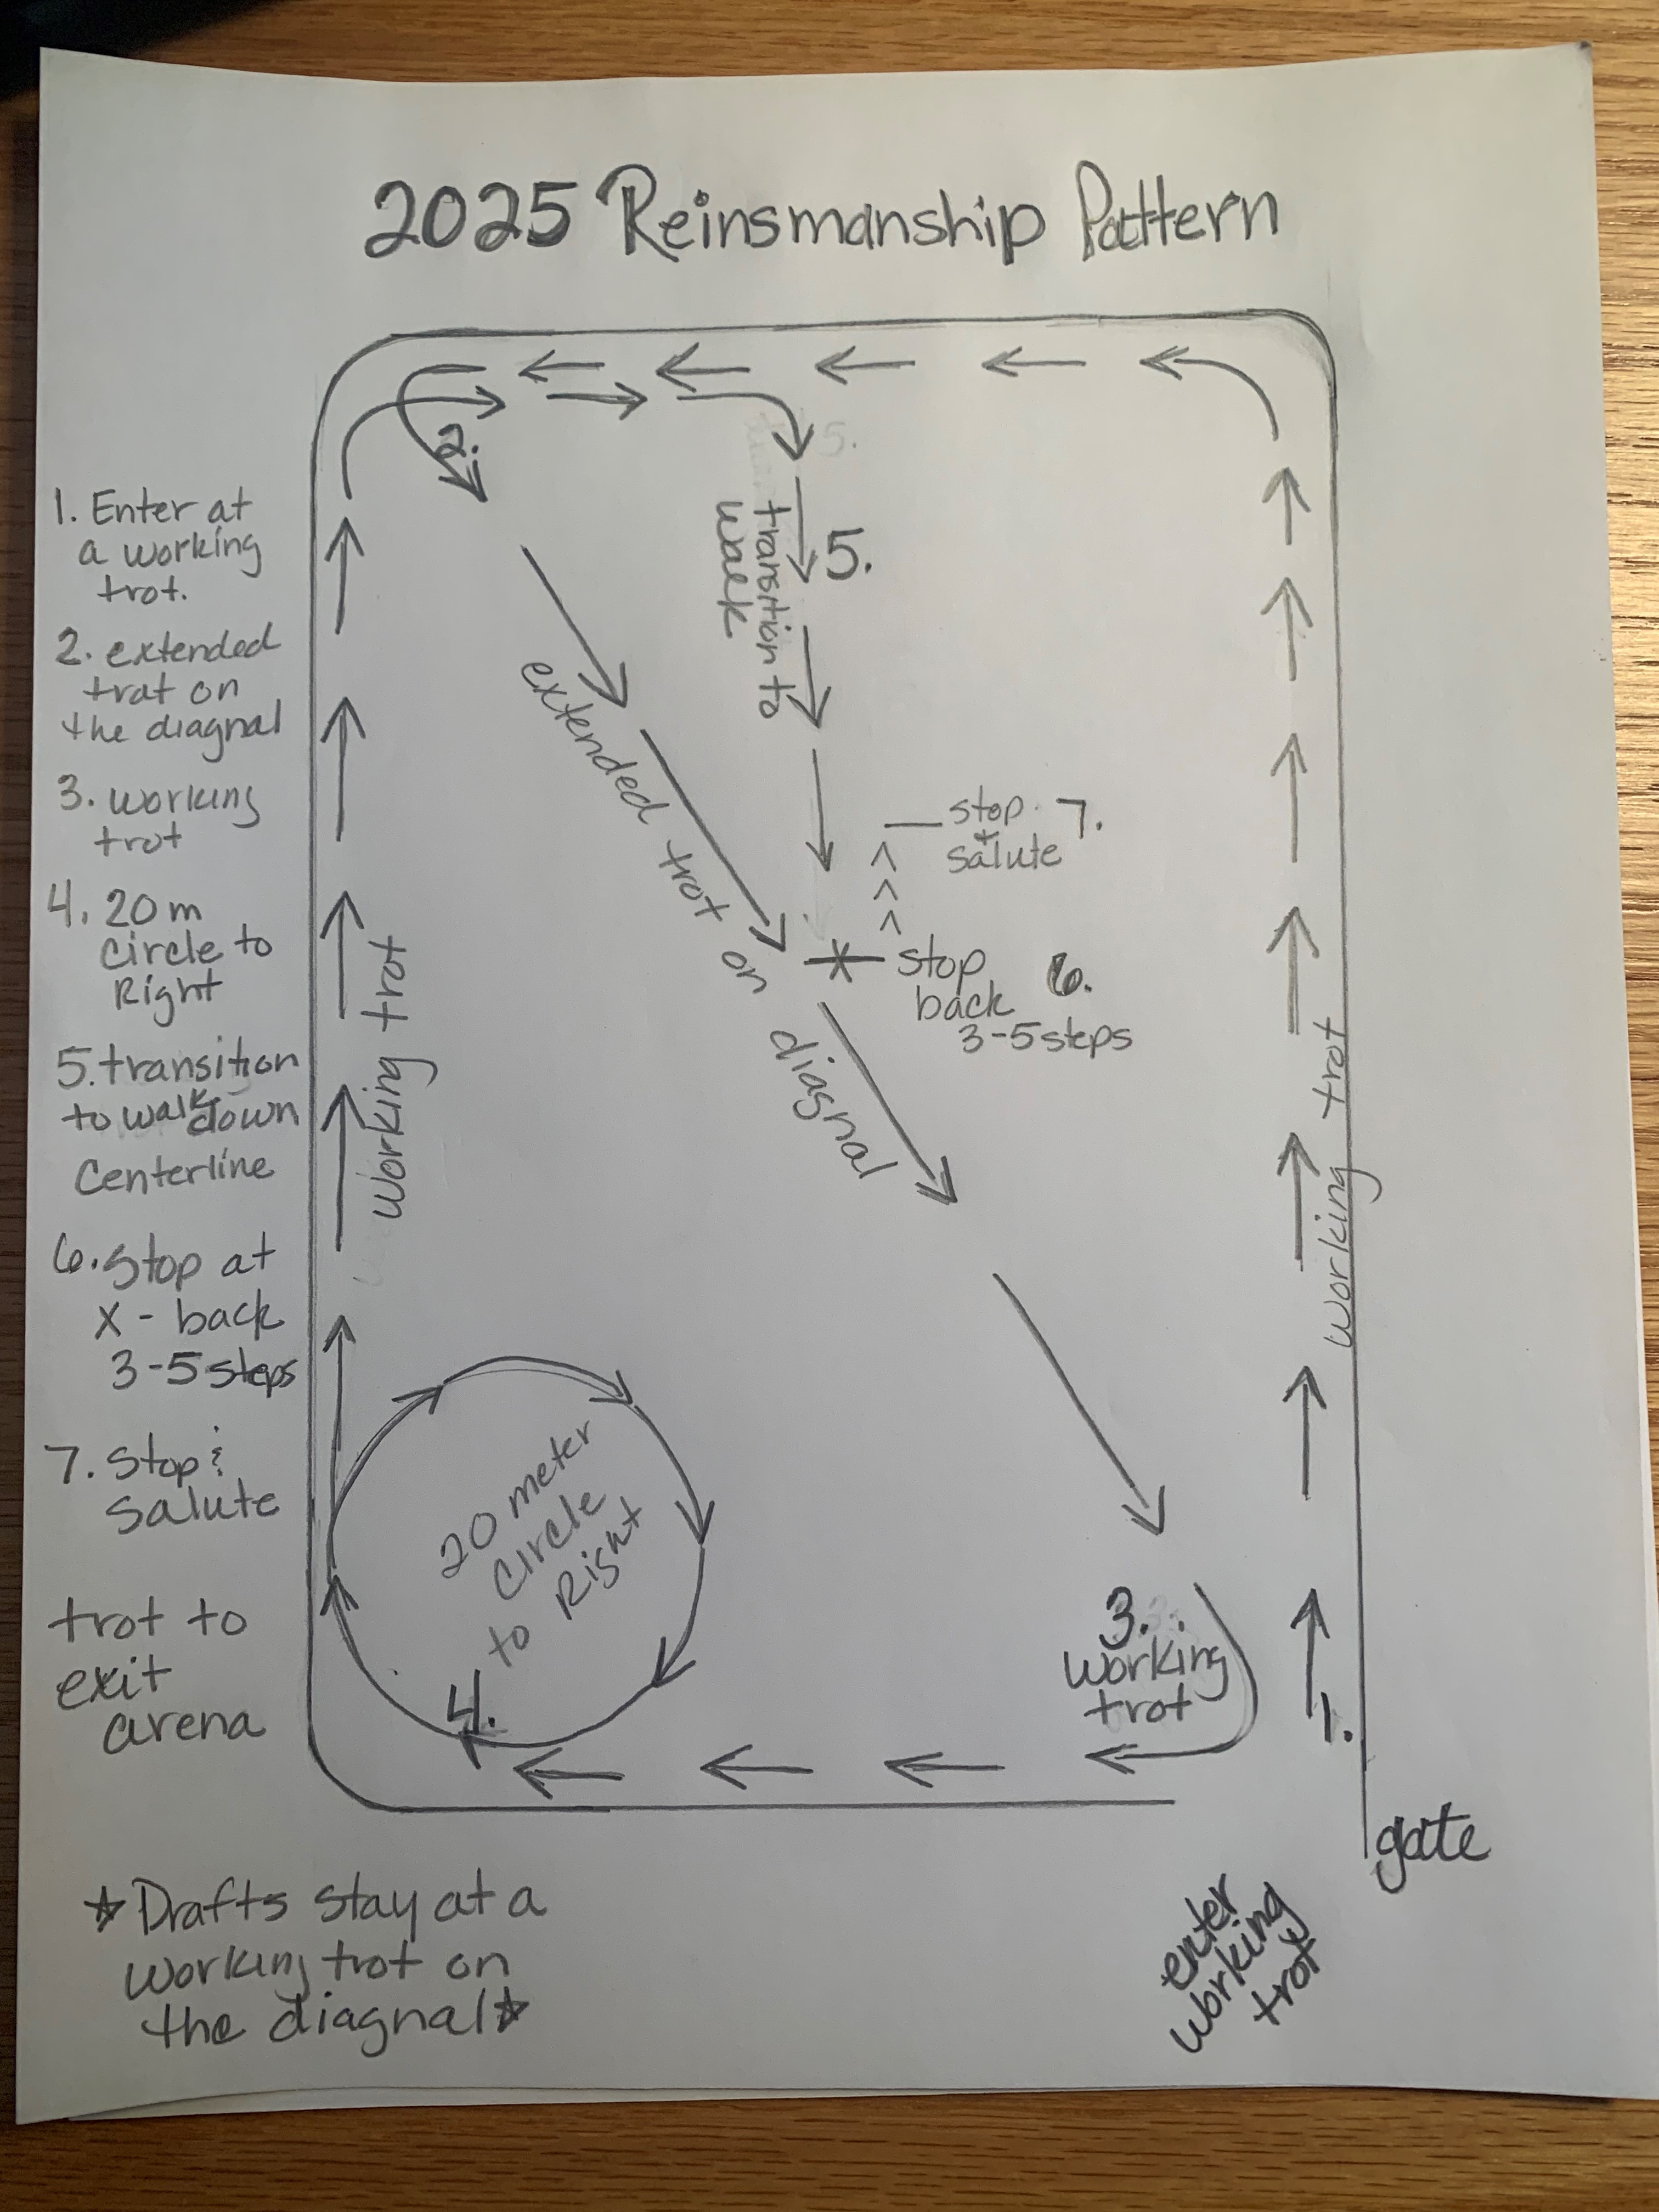 2025 Reinsmanship Pattern
1. Enter at
a working
trot.
2. extended
trat on
the diagnal
3. working
trot
4. 20 m
Circle to
Right
5. transition
to walk down
Centerline
6. Stop at
X - back
3-5 steps
7. Stop &
Salute
trot to
exit
arena
2.
transition to
walk
5.
5.
extended trot on diagnal
stop 7.
+
salute
stop 6.
back
3-5 steps
working trot
working trot
20 meter
Circle
to Right
4.
3.
working
trot
1.
gate
enter
working
trot
☆ Drafts stay at a
working trot on
the diagnal ☆